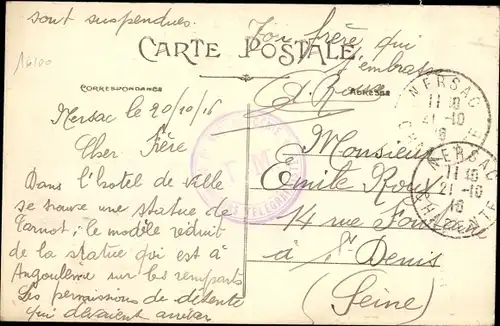 sont suspendues. Ton frère qui
t'embrasse
16100
CARTE POSTALE
CORRESPONDANCE
ADRESSE
Nersac le 20/10/16
Cher Frère
Dans l'hotel de ville
se trouve une statue de
Carnot; le modèle réduit
de la statue qui est à
Angoulême sur les remparts
Les permissions de détente
qui devaient arriver
Monsieur
Emile Roux
14 rue Fontaine
à St Denis
(Seine)
NERSAC
11 10
21-10
16
NERSAC
11 10
21-10
16
CHARENTE
T M